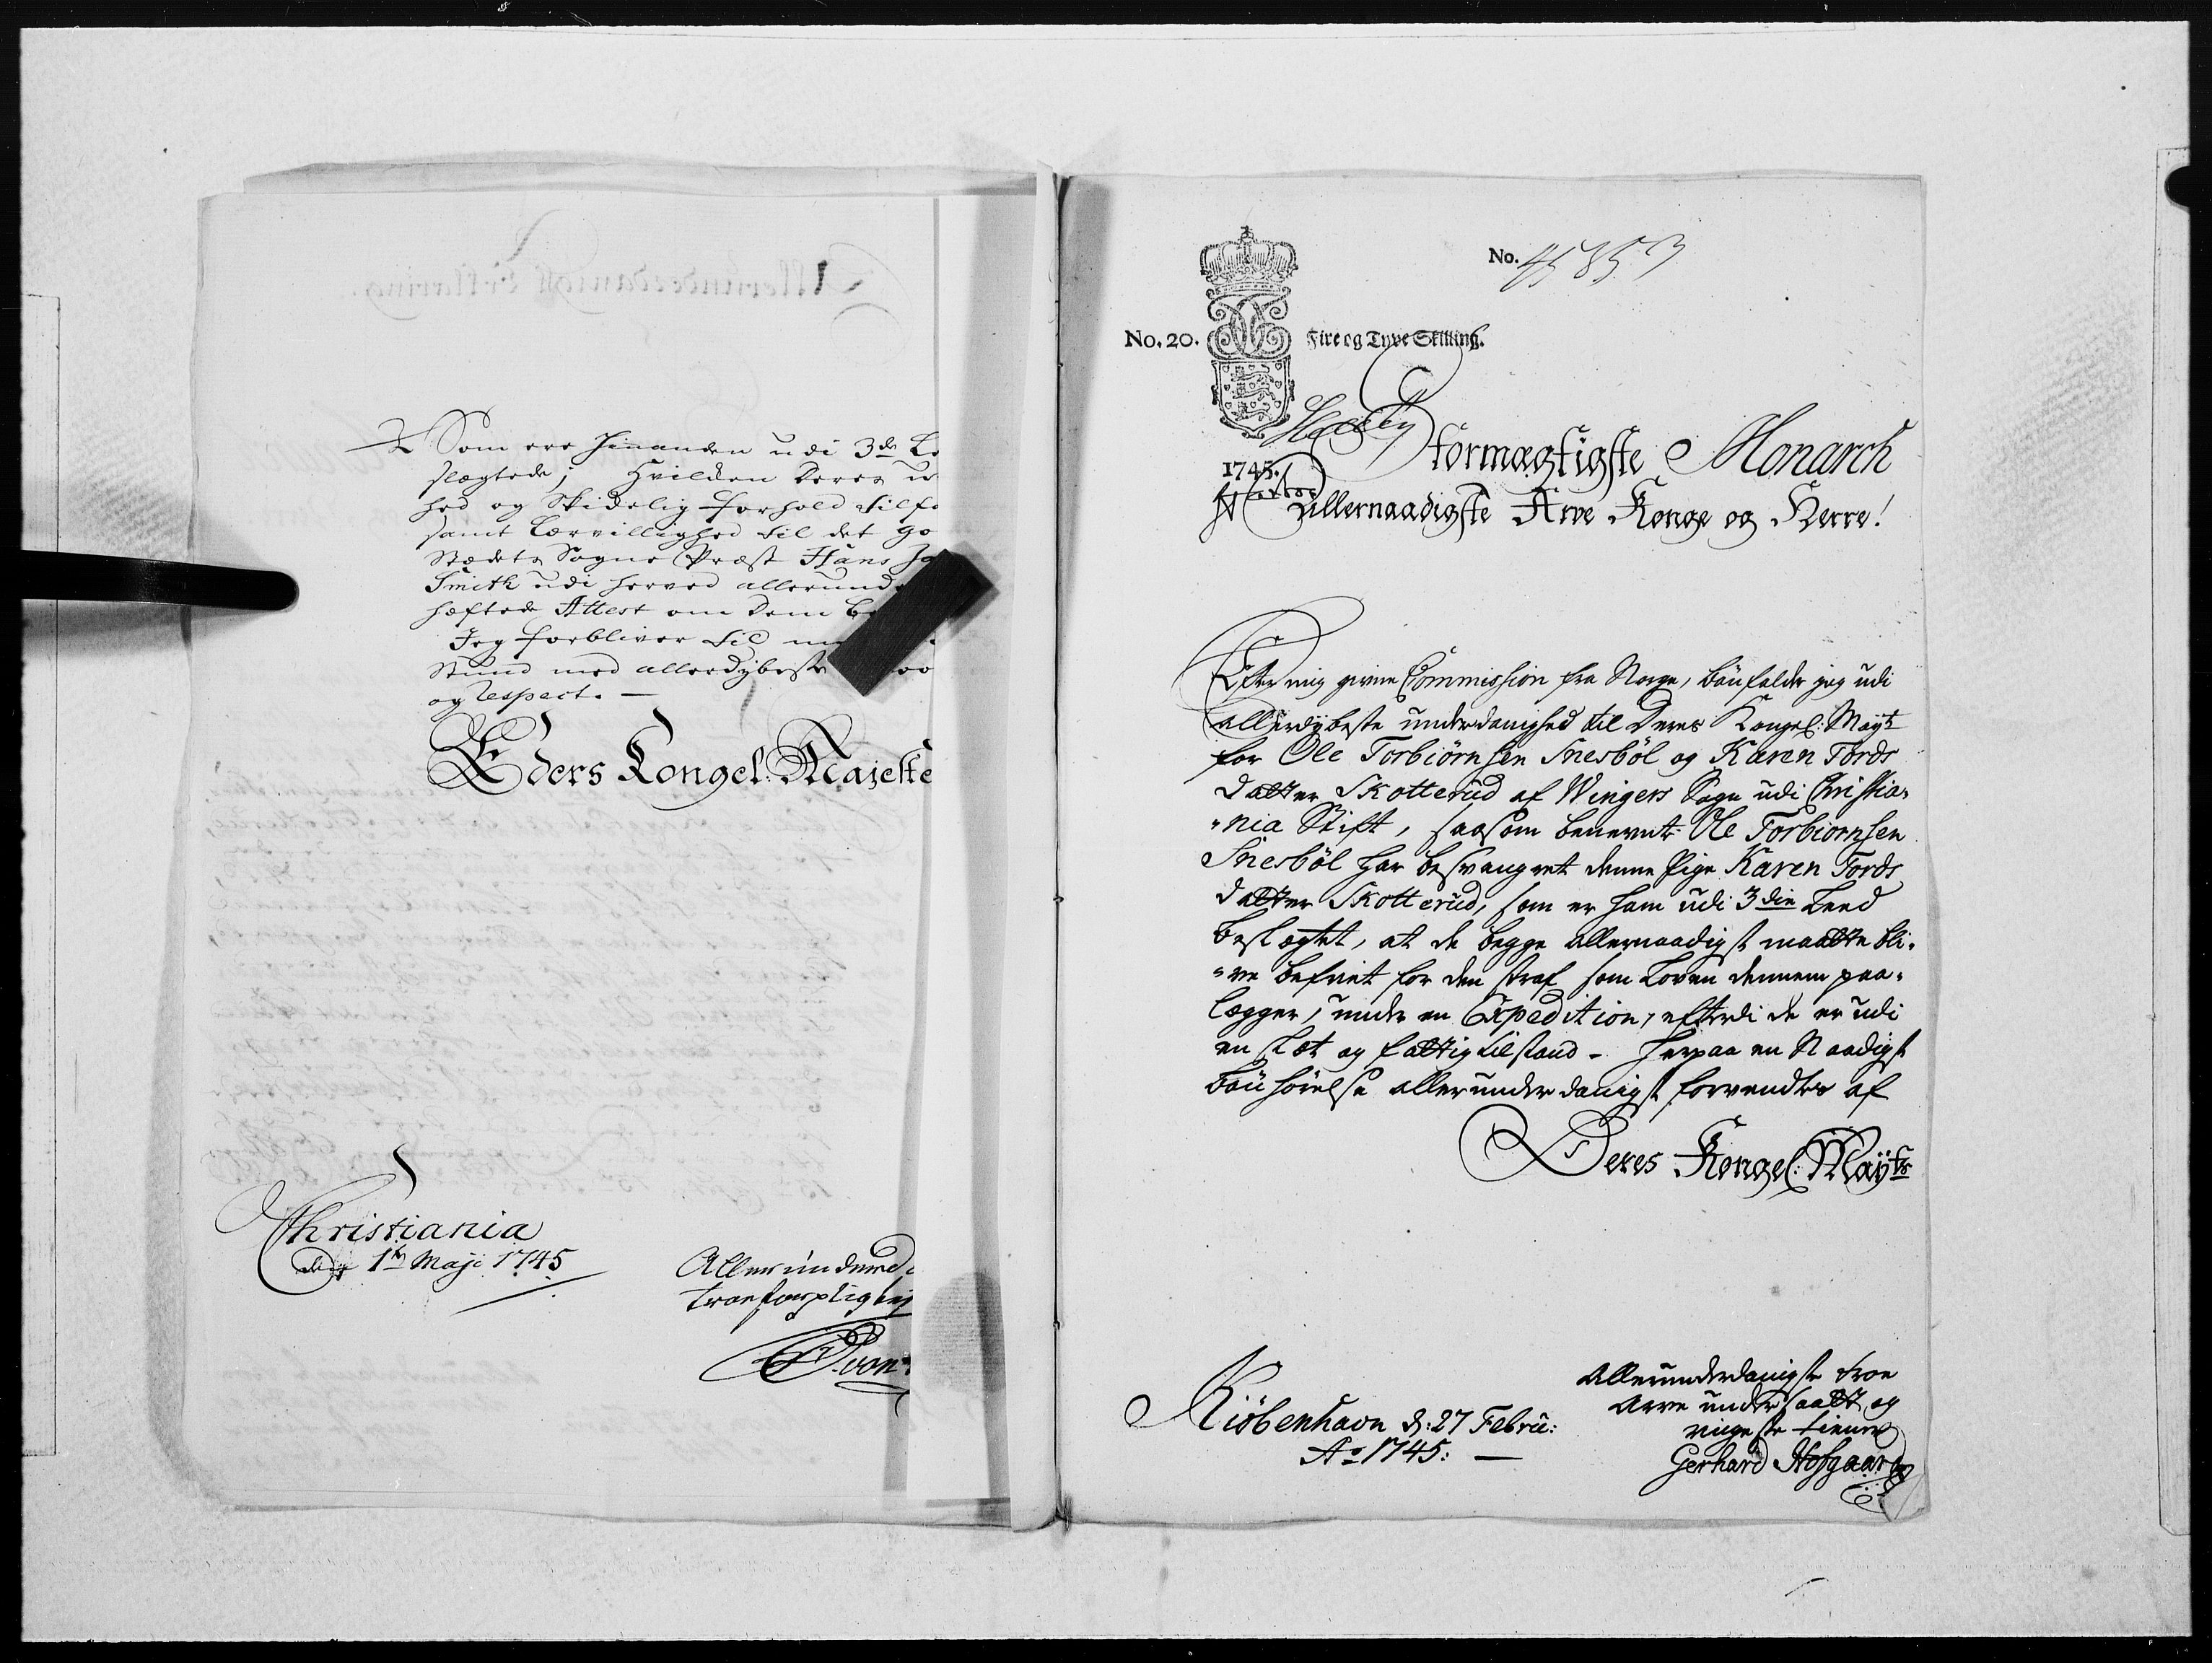 Som ere hinanden udi 3de Le
slægtede; Hvilken Deres u
hed og Skidelig forhold tilfo
samt Lærvillighed til det go
Stædets Sogne Præst Hans Ja
Smith udi herved allerunde
hæftede Attest om dem be
Jeg forbliver til mi
Stund med allerdybeste
og respect. —
Eders Kongel: Majeste
Christiania
den 1te Maji 1745
Allerunderd
troe forpligtig
No. 45853
No. 20. Fire og Tyve Skilling.
1745.
Stormægtigste Monarch
Allernaadigste Arve Konge og Herre!
Efter mig given Commission fra Norge, bønfalder jeg udi
allerdybeste underdanighed til Deres Kongel: Mayt
for Ole Torbiörnsen Snesböl og Karen Tords
datter Skotterud af Wingers Sogn udi Christia-
-nia Stift, saasom benevnte Ole Torbiornsen
Snesböl har besvangret denne Pige Karen Tords
datter Skotterud, som er ham udi 3die Leed
beslægtet, at de begge allernaadigst maatte bli-
-ve befriet for den straf som Loven dennem paa-
lægger, under en Expedition, efterdi de er udi
en slet og fattig tilstand - herpaa en Naadigst
bönhörelse allerunderdanigst forventes af
Deres Kongel: Mayts
Kiöbenhavn d: 27 Febru:
Ao 1745: —
Allerunderdanigste troe
Arve undersaatt og
ringeste tienere
Gerhard Hofgaard